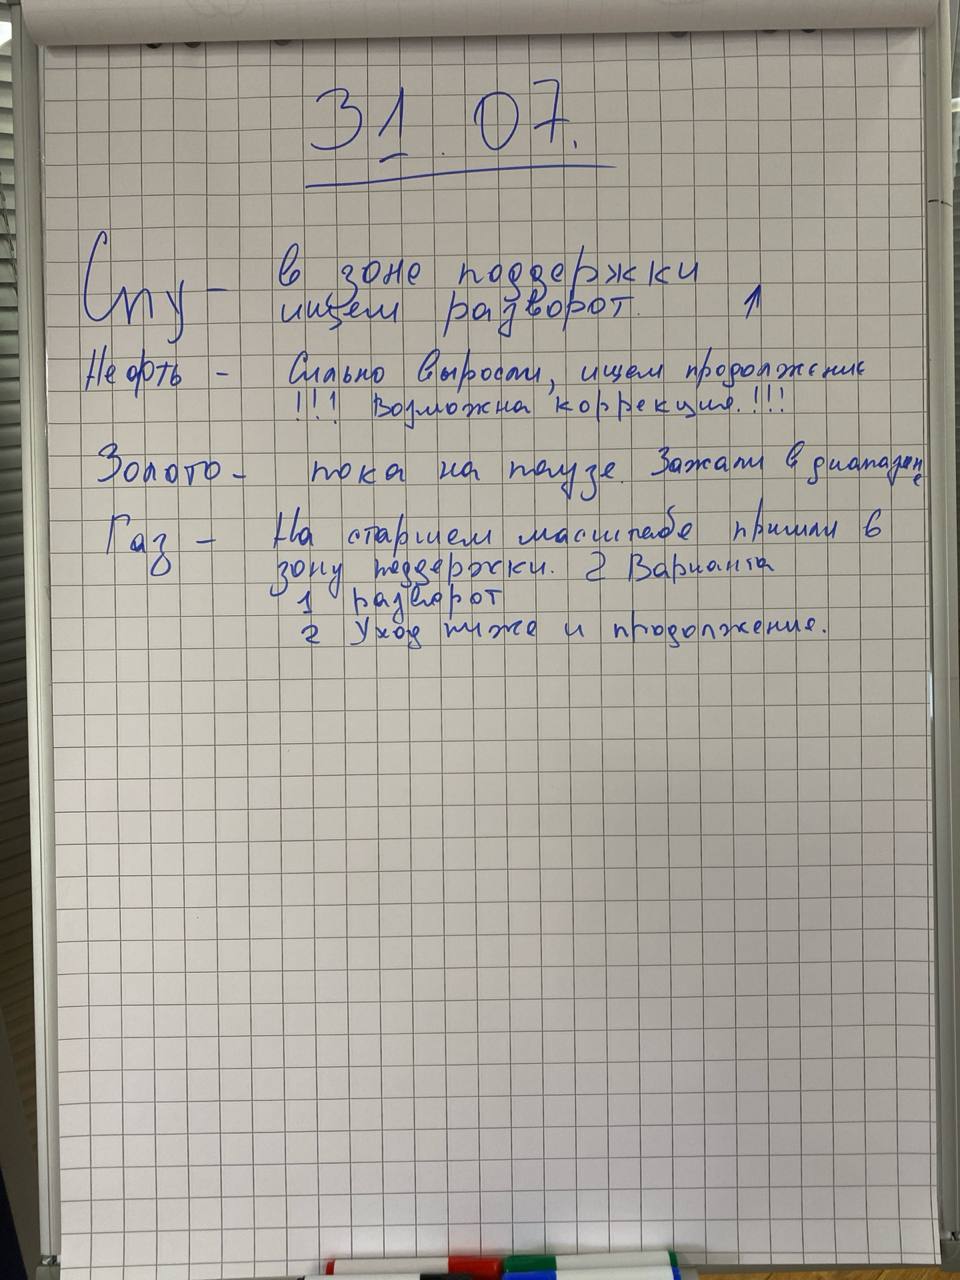 31.07.
Спу - в зоне поддержки
ищем разворот. ↑
Нефть - Сильно выросли, ищем продолжение
!!! Возможна коррекция. !!!
Золото - пока на паузе. Зажали в диапазоне
Газ - На старшем масштабе пришли в
зону поддержки. 2 Варианта
1 разворот
2 Уход ниже и продолжение.